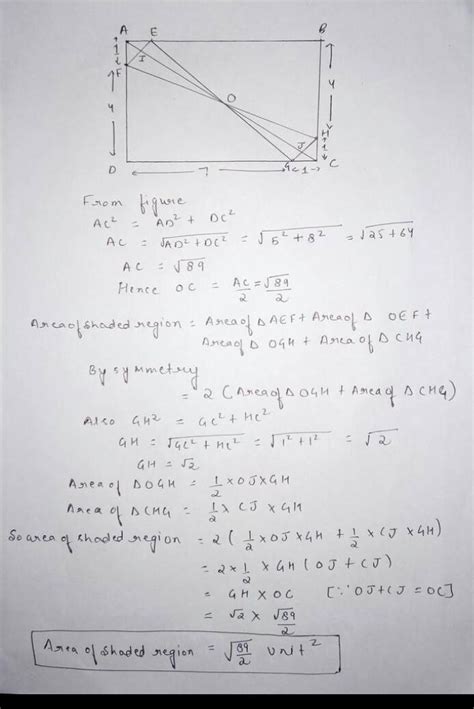 A E B
1
I
F
4
O
4
H
J
1
D 7 G 1 C
From figure
AC² = AD² + DC²
AC = √AD²+DC² = √5²+8² = √25+64
AC = √89
Hence OC = AC/2 = √89/2
Area of shaded region = Area of Δ AEF + Area of Δ OEF +
Area of Δ OGH + Area of Δ CHG
By symmetry
= 2 (Area of Δ OGH + Area of Δ CHG)
Also GH² = GC² + HC²
GH = √GC² + HC² = √1²+1² = √2
GH = √2
Area of ΔOGH = 1/2 × OJ × GH
Area of ΔCHG = 1/2 × CJ × GH
So area of shaded region = 2 ( 1/2 × OJ × GH + 1/2 × CJ × GH)
= 2 × 1/2 × GH (OJ + CJ)
= GH × OC [∵ OJ + CJ = OC]
= √2 × √89/2
Area of shaded region = √89/2 unit²